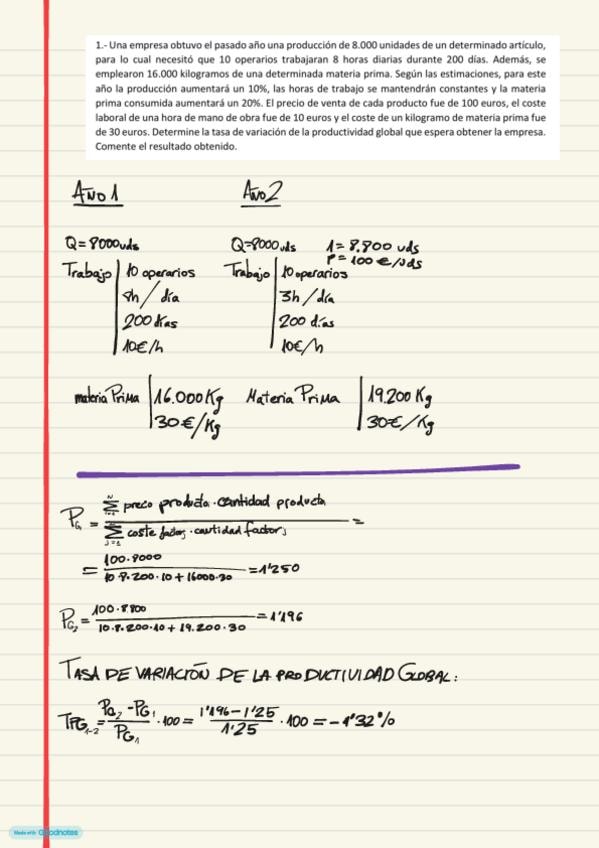 1.- Una empresa obtuvo el pasado año una producción de 8.000 unidades de un determinado artículo,
para lo cual necesitó que 10 operarios trabajaran 8 horas diarias durante 200 días. Además, se
emplearon 16.000 kilogramos de una determinada materia prima. Según las estimaciones, para este
año la producción aumentará un 10%, las horas de trabajo se mantendrán constantes y la materia
prima consumida aumentará un 20%. El precio de venta de cada producto fue de 100 euros, el coste
laboral de una hora de mano de obra fue de 10 euros y el coste de un kilogramo de materia prima fue
de 30 euros. Determine la tasa de variación de la productividad global que espera obtener la empresa.
Comente el resultado obtenido.
AÑO 1 AÑO 2
Q=8000uds Q=8000uds 1=8.800 uds
P=100€/uds
Trabajo 10 operarios Trabajo 10 operarios
8h/día 8h/día
200 días 200 días
10€/h 10€/h
materia Prima 16.000Kg Materia Prima 19.200 Kg
30€/Kg 30€/Kg
PG = Σ preco producto · cantidad producto / Σ coste factor · cantidad factor =
= 100·8000 / 10·8·200·10 + 16000·30 = 1'250
PG2 = 100·8.800 / 10·8·200·10 + 19.200·30 = 1'196
TASA DE VARIACIÓN DE LA PRODUCTIVIDAD GLOBAL:
TPG1-2 = PG2 - PG1 / PG1 · 100 = 1'196 - 1'25 / 1'25 · 100 = -4'32%
Made with Goodnotes